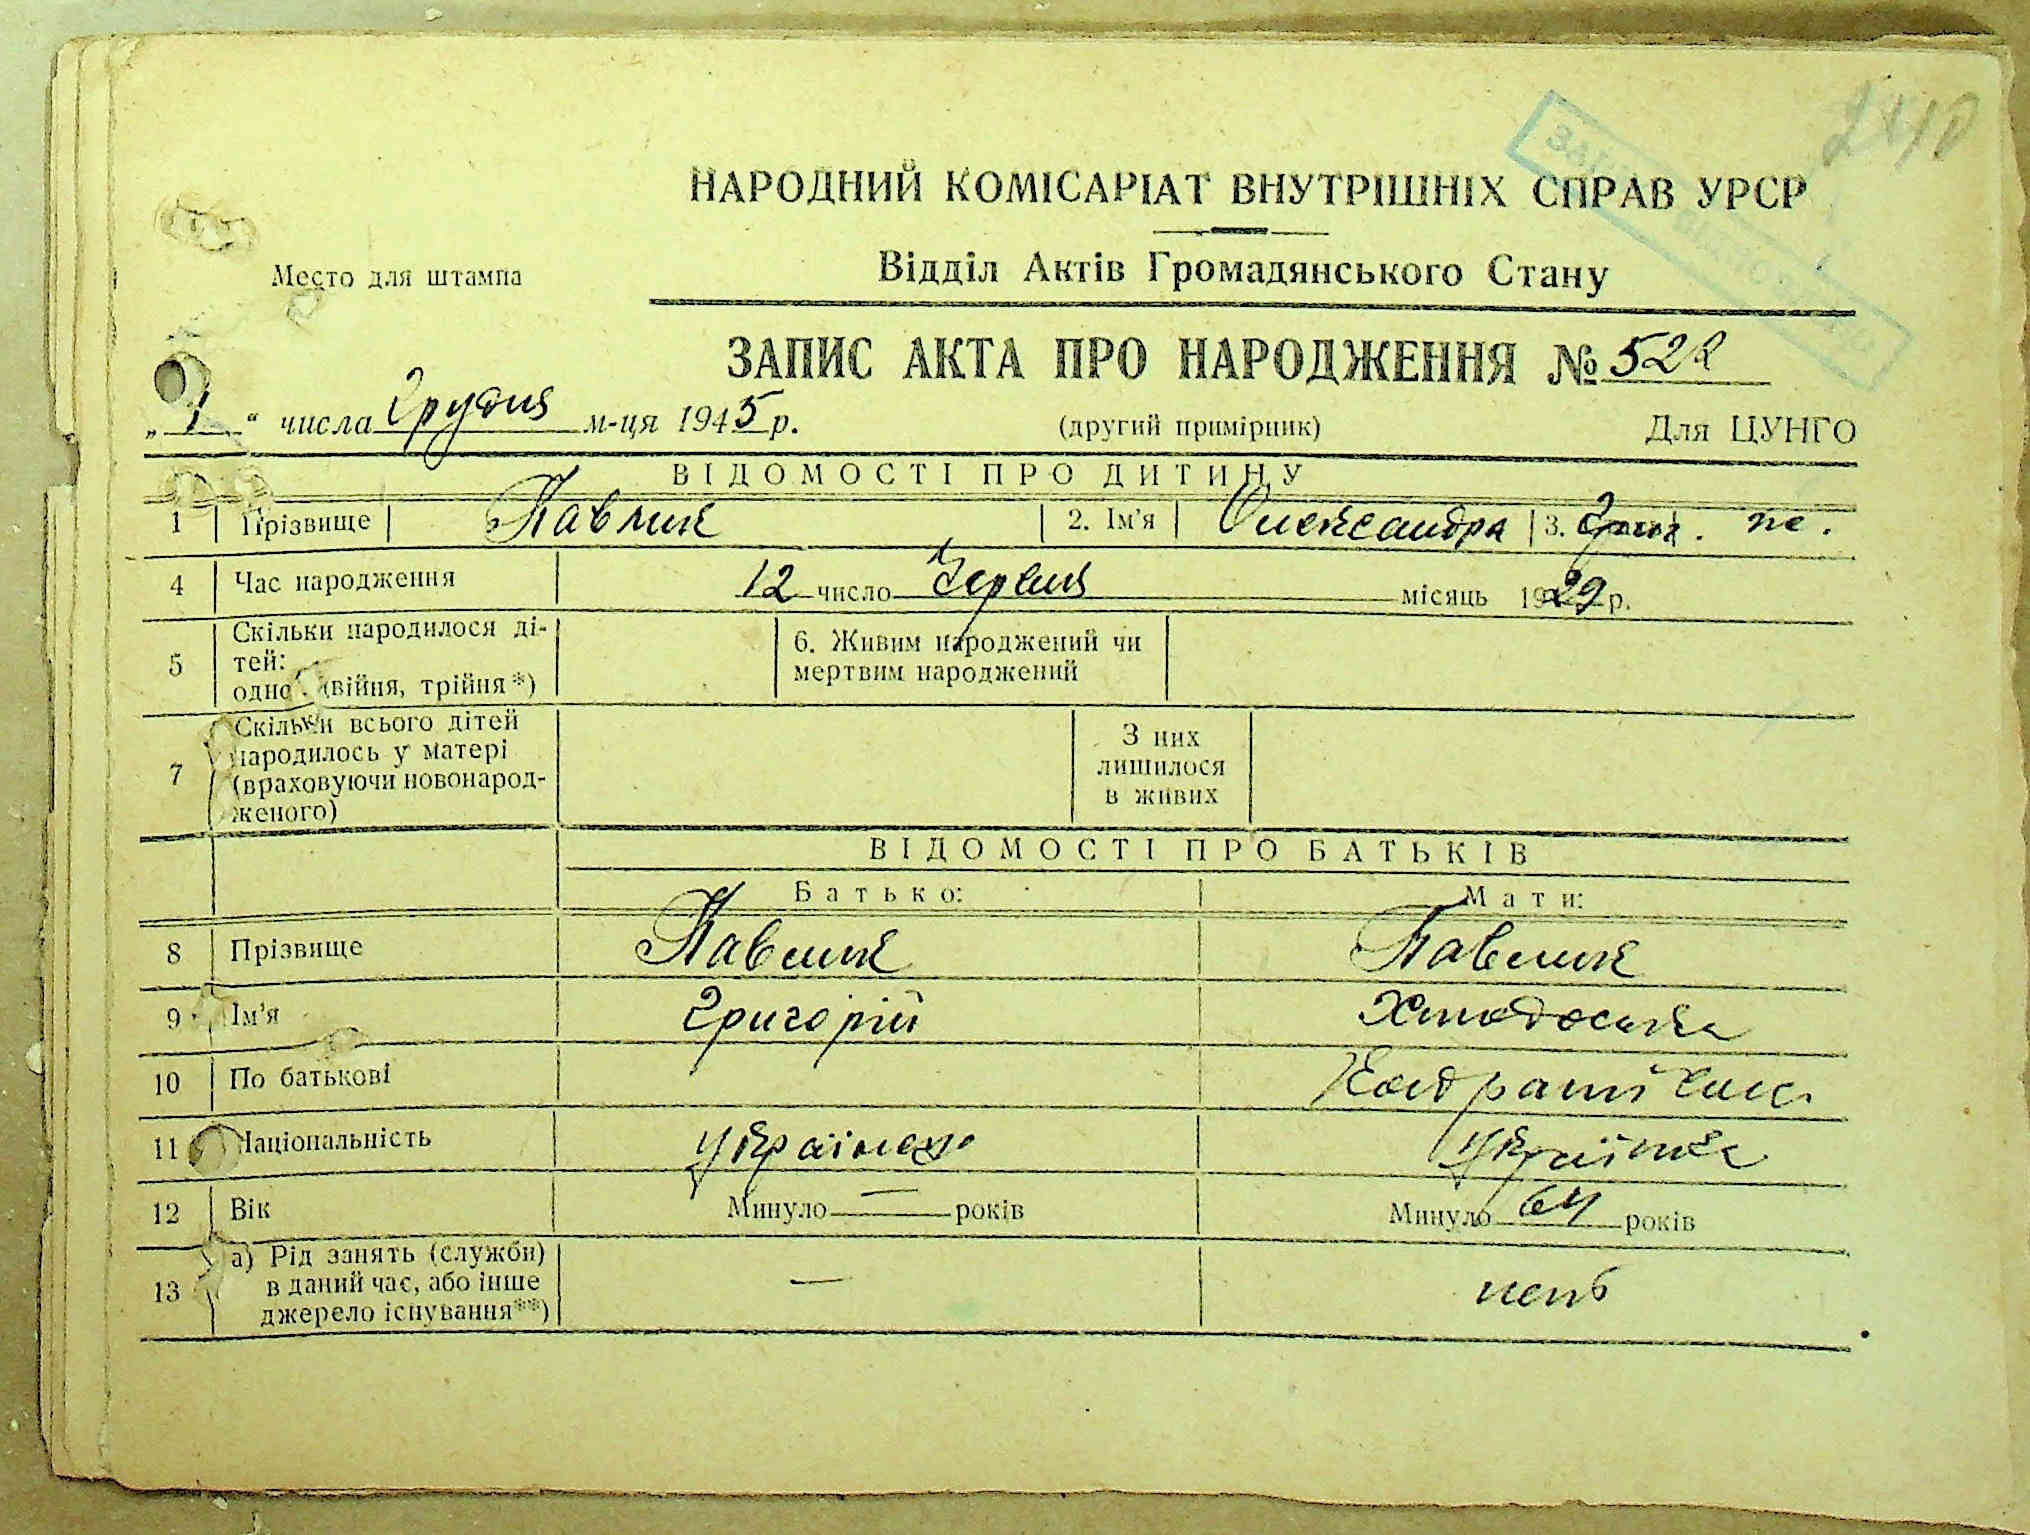 2410
НАРОДНИЙ КОМІСАРІАТ ВНУТРІШНІХ СПРАВ УРСР
Место для штампа
Відділ Актів Громадянського Стану
ЗАПИС АКТА ПРО НАРОДЖЕННЯ № 522
„ 1 “ числа Грудня м-ця 1945 р. (другий примірник) Для ЦУНГО
ВІДОМОСТІ ПРО ДИТИНУ
1 Прізвище Павлик 2. Ім'я Олександра 3. ж.
4 Час народження 12 число Червня місяць 1929 р.
5 Скільки народилося ді-
тей:
одно, двійня, трійня*)
6. Живим народжений чи
мертвим народжений
7 Скільки всього дітей
народилось у матері
(враховуючи новонарод-
женого)
З них
лишилося
в живих
ВІДОМОСТІ ПРО БАТЬКІВ
Батько: Мати:
8 Прізвище Павлик Павлик
9 Ім'я Григорій
10 По батькові
11 Національність українець українка
12 Вік Минуло — років Минуло 64 років
13 а) Рід занять (служби)
в даний час, або інше
джерело існування**)
—